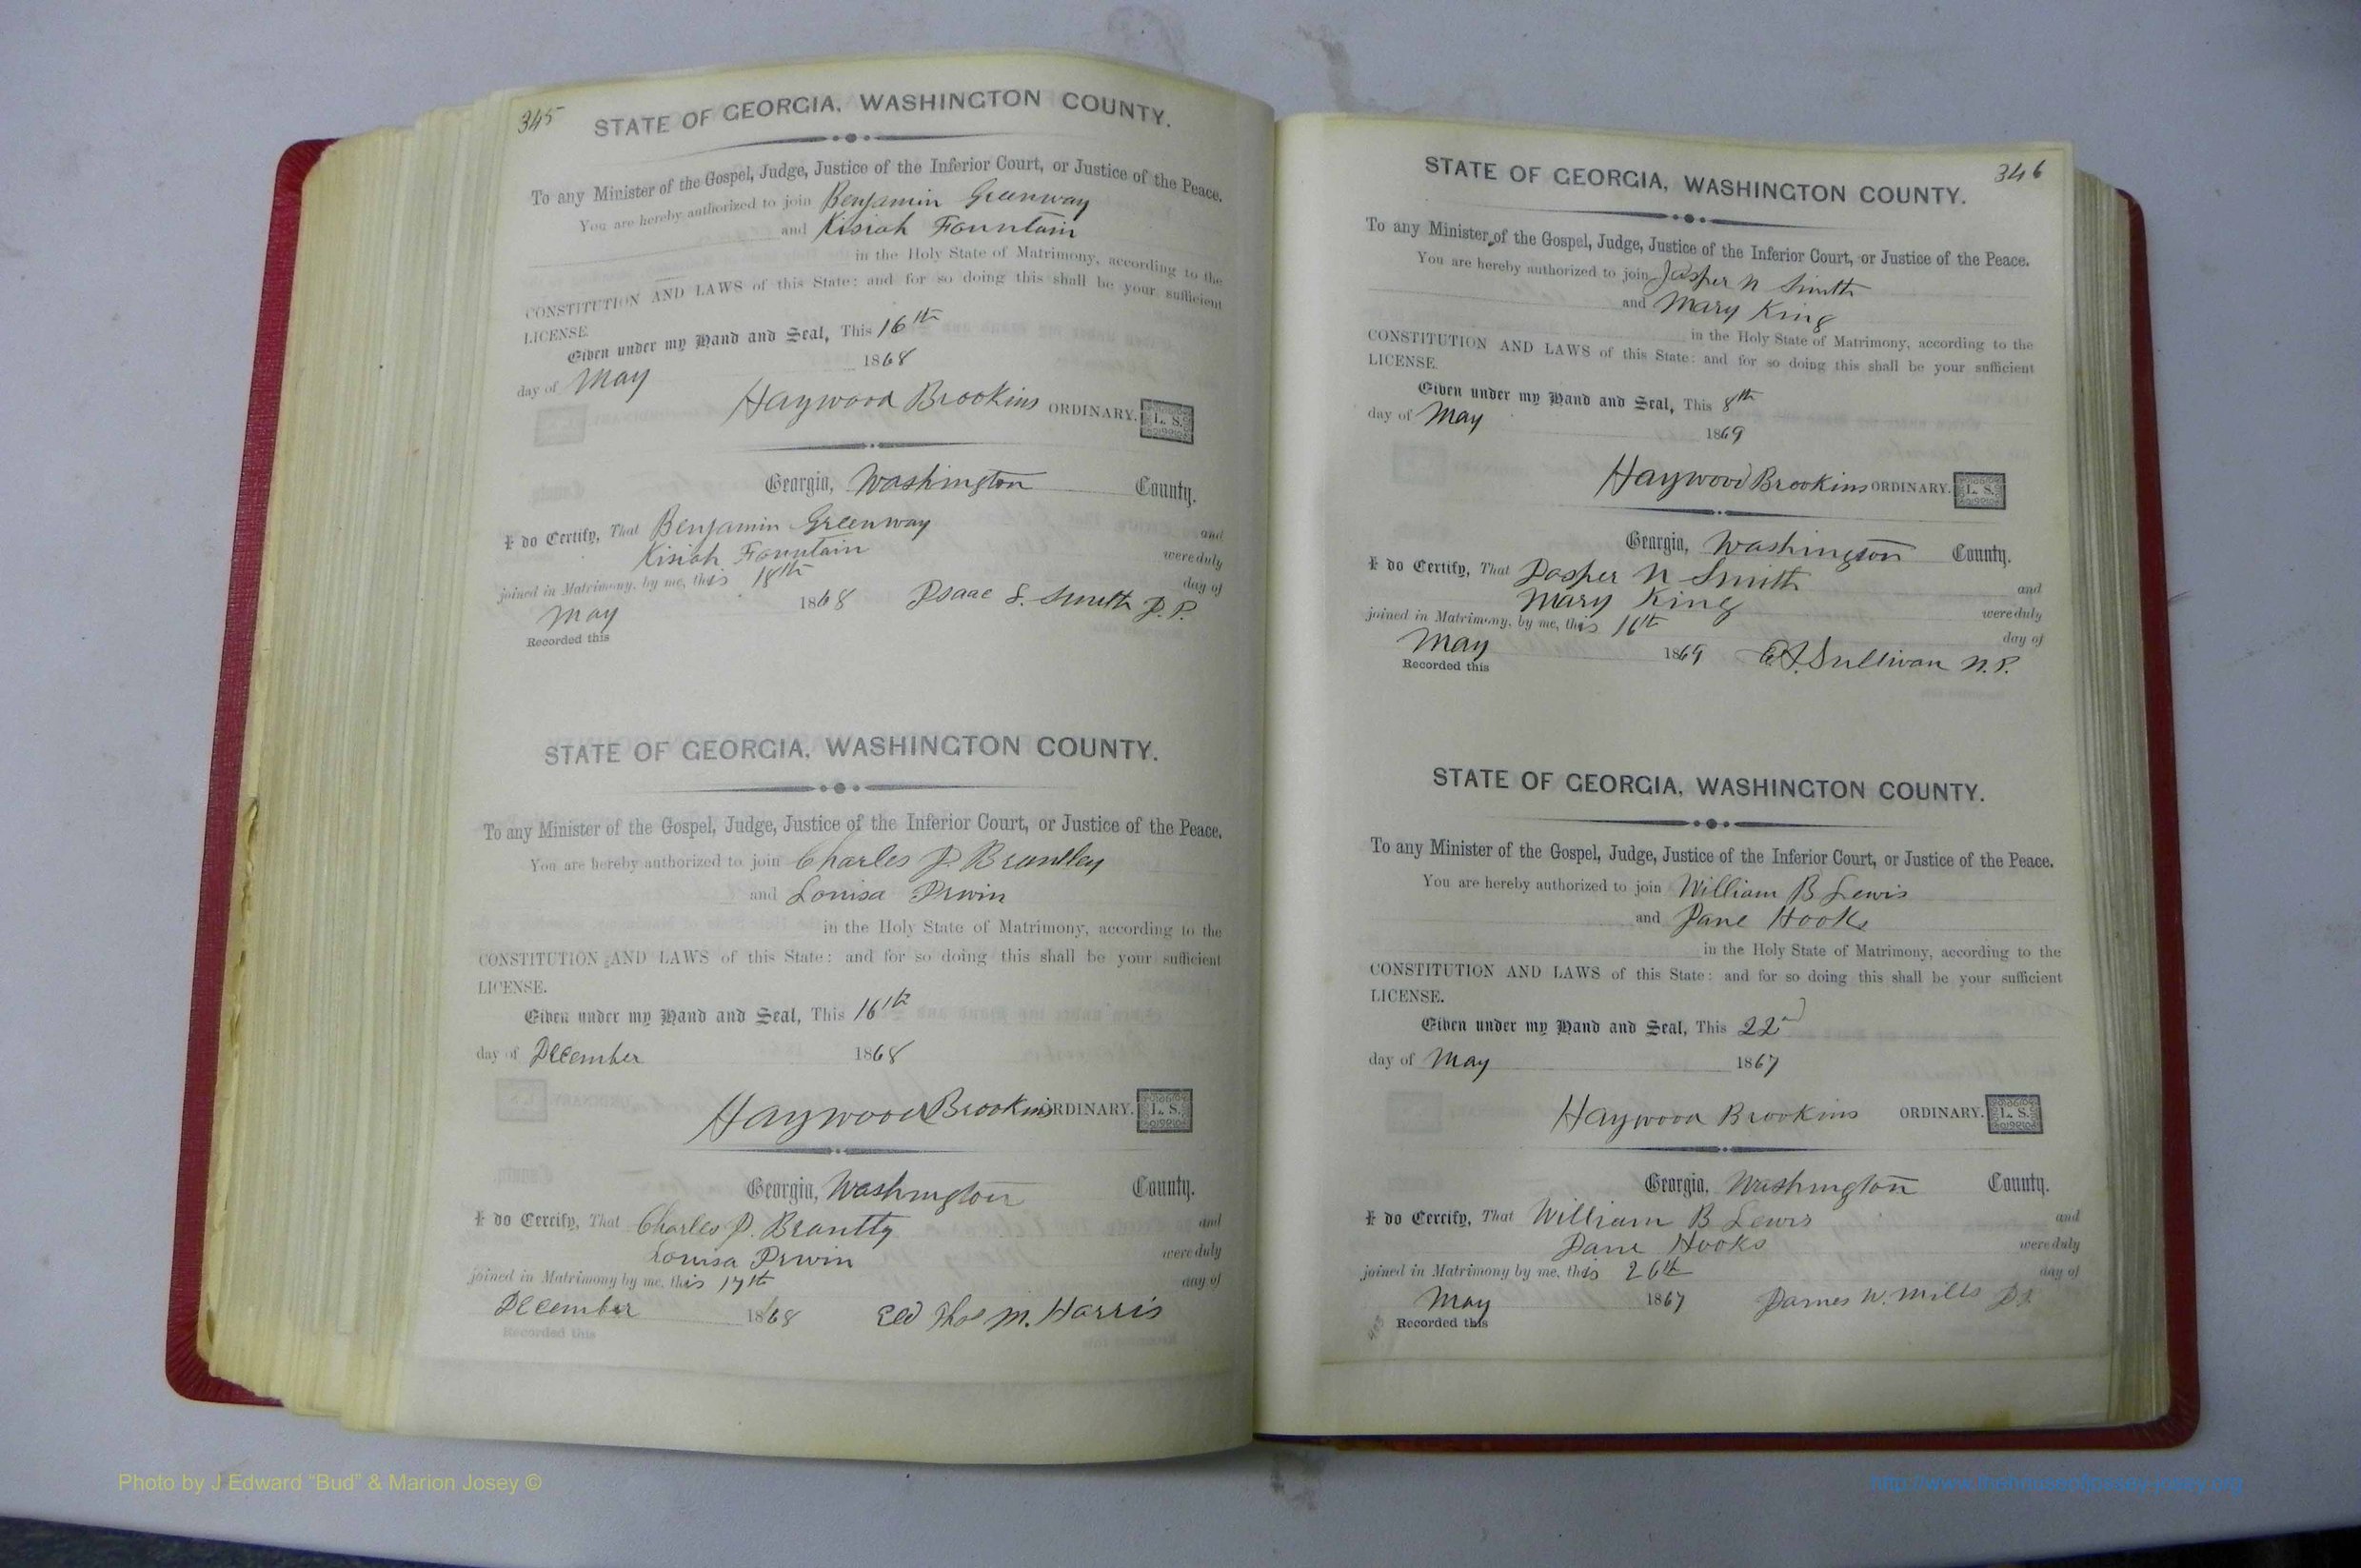 345
STATE OF GEORGIA, WASHINGTON COUNTY.
To any Minister of the Gospel, Judge, Justice of the Inferior Court, or Justice of the Peace.
You are hereby authorized to join Benjamin Greenway
and Kisiah Fountain
in the Holy State of Matrimony, according to the
CONSTITUTION AND LAWS of this State: and for so doing this shall be your sufficient
LICENSE.
Given under my Hand and Seal, This 16th
day of May 1868
Haywood Brookins ORDINARY. L. S.
Georgia, Washington County.
I do Certify, That Benjamin Greenway and
Kisiah Fountain were duly
joined in Matrimony, by me, this 18th day of
May 1868 Isaac S. Smith J.P.
Recorded this
STATE OF GEORGIA, WASHINGTON COUNTY.
To any Minister of the Gospel, Judge, Justice of the Inferior Court, or Justice of the Peace.
You are hereby authorized to join Charles J Brantley
and Louisa Irwin
in the Holy State of Matrimony, according to the
CONSTITUTION AND LAWS of this State: and for so doing this shall be your sufficient
LICENSE.
Given under my Hand and Seal, This 16th
day of December 1868
Haywood Brookins ORDINARY. L. S.
Georgia, Washington County.
I do Certify, That Charles J. Brantly and
Louisa Irwin were duly
joined in Matrimony by me, this 17th day of
December 1868 Eld Thos M. Harris
Recorded this
346
STATE OF GEORGIA, WASHINGTON COUNTY.
To any Minister of the Gospel, Judge, Justice of the Inferior Court, or Justice of the Peace.
You are hereby authorized to join Jasper N Smith
and Mary King
in the Holy State of Matrimony, according to the
CONSTITUTION AND LAWS of this State: and for so doing this shall be your sufficient
LICENSE.
Given under my Hand and Seal, This 8th
day of May 1869
Haywood Brookins ORDINARY. L. S.
Georgia, Washington County.
I do Certify, That Jasper N Smith and
Mary King were duly
joined in Matrimony, by me, this 16th day of
May 1869 Sullivan N.P.
Recorded this
STATE OF GEORGIA, WASHINGTON COUNTY.
To any Minister of the Gospel, Judge, Justice of the Inferior Court, or Justice of the Peace.
You are hereby authorized to join William B Lewis
and Jane Hooks
in the Holy State of Matrimony, according to the
CONSTITUTION AND LAWS of this State: and for so doing this shall be your sufficient
LICENSE.
Given under my Hand and Seal, This 22nd
day of May 1867
Haywood Brookins ORDINARY. L. S.
Georgia, Washington County.
I do Certify, That William B Lewis and
Jane Hooks were duly
joined in Matrimony by me, this 26th day of
May 1867 James W. Mills
Recorded this
Photo by J Edward "Bud" & Marion Josey ©
http://www.thehouseofjossey-josey.org